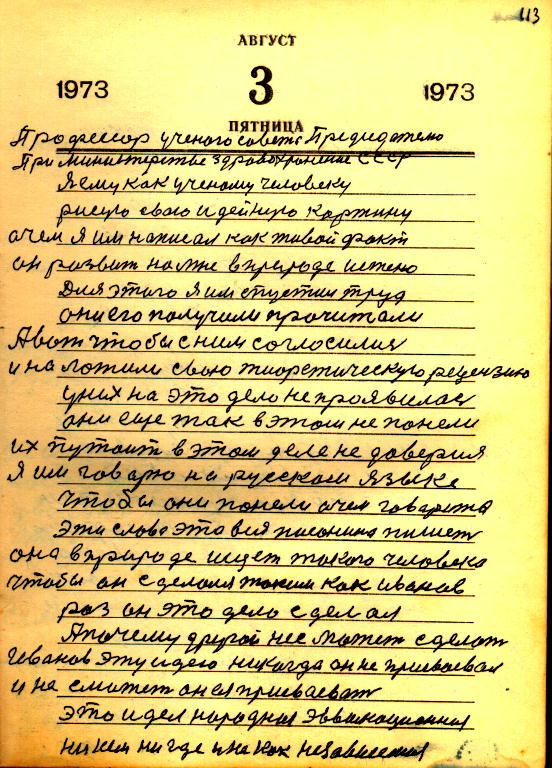 113
АВГУСТ
1973 3 1973
ПЯТНИЦА
Профессор ученого совета Предидателю
При министерстве здравохранение СССР
Я ему как ученому человеку
рисую свою идейную картину
а чем я им написал как живой факт
он развит на мне в природе
Для этого я им спустил труд
они его получили прочитали
А вот чтобы с ним согласился
и наложили свою тиоретическую рецензию
у них на это дело не проявилась
они еще так в этом не понели
их путоит в этом деле не доверия
Я им говарю на русском языке
чтобы они понели а чем говарится
Эти слова это вся писанина пишет
она в природе ищет токого человека
чтобы он сделался таким как Иванов
раз он это дело сделал
А почему другой не может сделат
Иванов эту идею никогда он не присваевал
и не сможет он ея присваеват
это идея народная эвалюционная
ни кем ни где и на как независемая